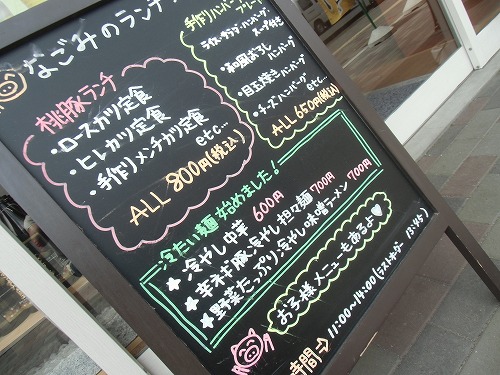 なごみのランチ
桃豚ランチ
・ロースカツ定食
・ヒレカツ定食
・手作りメンチカツ定食
etc...
ALL 800円(税込)
手作りハンバーグ
プレート
ライス・サラダ・ハンバーグ
スープ付き
・和風おろし
ハンバーグ
・目玉焼きハンバーグ
・チーズハンバーグ
etc...
ALL 650円(税込)
冷たい麺 始めました!
★冷やし中華 600円
★辛ネギ豚冷やし担々麺 700円
★野菜たっぷり冷やし味噌ラーメン 700円
お子様メニューもあるよ♥
時間⇒ 11:00~14:00(ラストオーダー 13:45)